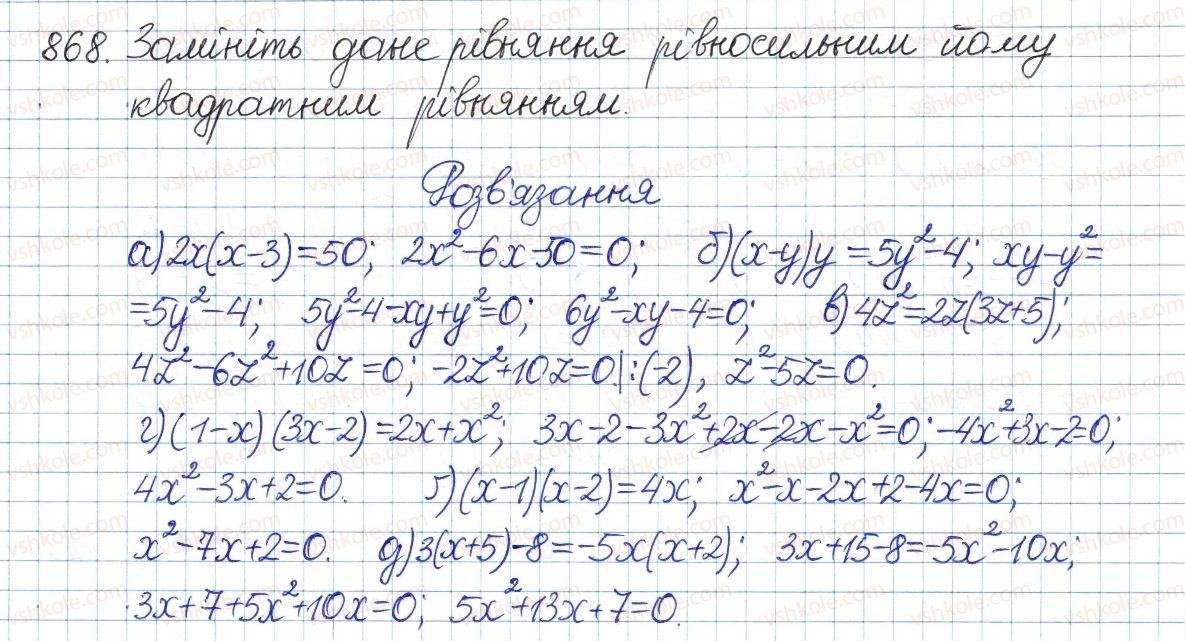 868. Замініть дане рівняння рівносильним йому
квадратним рівнянням.
Розв'язання
а) 2x(x-3)=50; 2x²-6x-50=0; б) (x-y)y=5y²-4; xy-y²=
=5y²-4; 5y²-4-xy+y²=0; 6y²-xy-4=0; в) 4z²=2z(3z+5);
4z²-6z²+10z=0; -2z²+10z=0.|:(-2), z²-5z=0.
г) (1-x)(3x-2)=2x+x²; 3x-2-3x²+2x-2x-x²=0; -4x²+3x-2=0;
4x²-3x+2=0. ґ) (x-1)(x-2)=4x; x²-x-2x+2-4x=0;
x²-7x+2=0. д) 3(x+5)-8=-5x(x+2); 3x+15-8=-5x²-10x;
3x+7+5x²+10x=0; 5x²+13x+7=0.